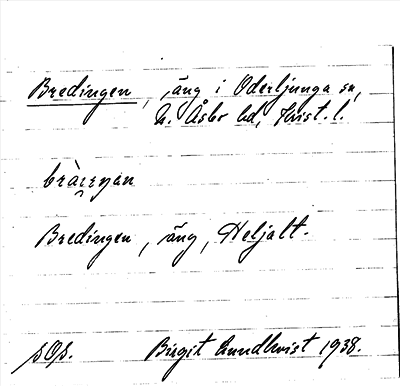 Bredingen, äng i Oderljunga sn,
N. Åsbo hd, Krist. l.
Bredingen, äng, Heljalt.
Birgit Lundkvist 1938.